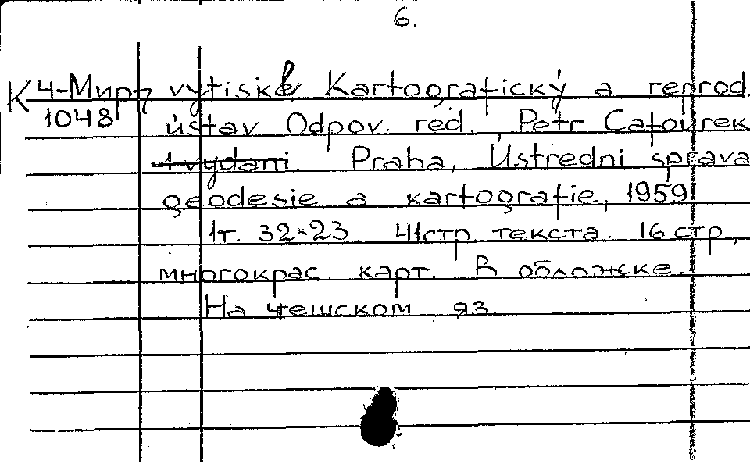 6.
К 4-Мир vytiskl Kartografický a reprod.
1048 ústav Odpov. red. Petr Čatoŭrek
1 vydani Praha, Ústredni správa
geodesie a kartografie, 1959
1т. 32×23 41стр. текста. 16 стр.
многокрас. карт. В обложке.
На чешском яз.